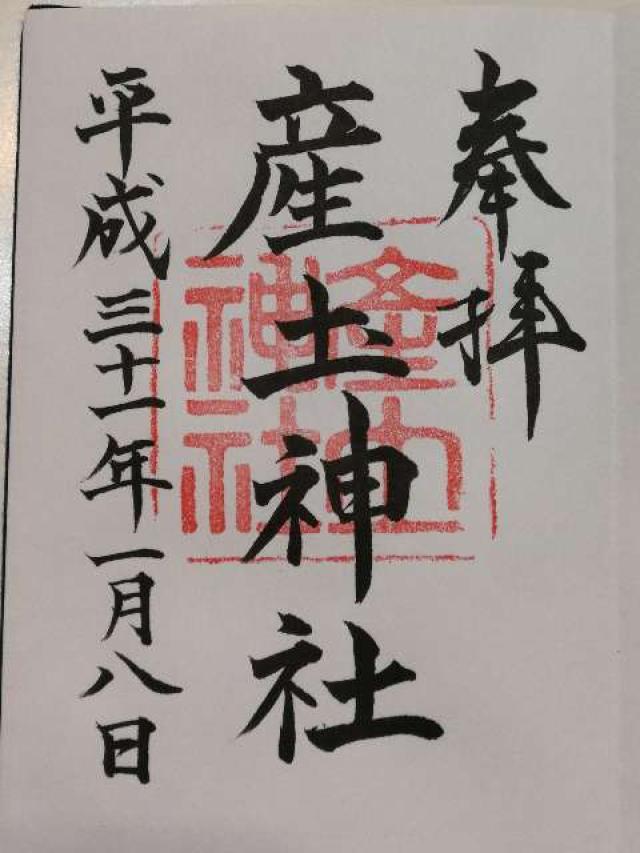 奉拝
産土神社
産土神社
平成三十一年一月八日